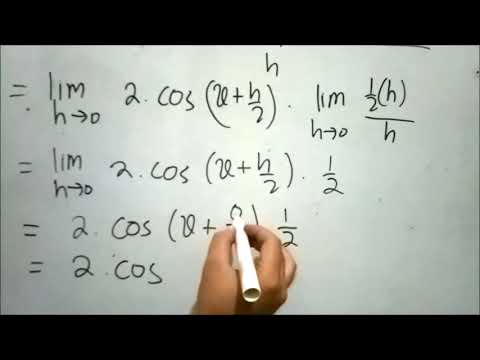 h
= lim h→0 2.cos (x + h/2) . lim h→0 ½(h)/h
= lim h→0 2.cos (x + h/2) . 1/2
= 2. cos (x + 0 ) 1/2
= 2 cos